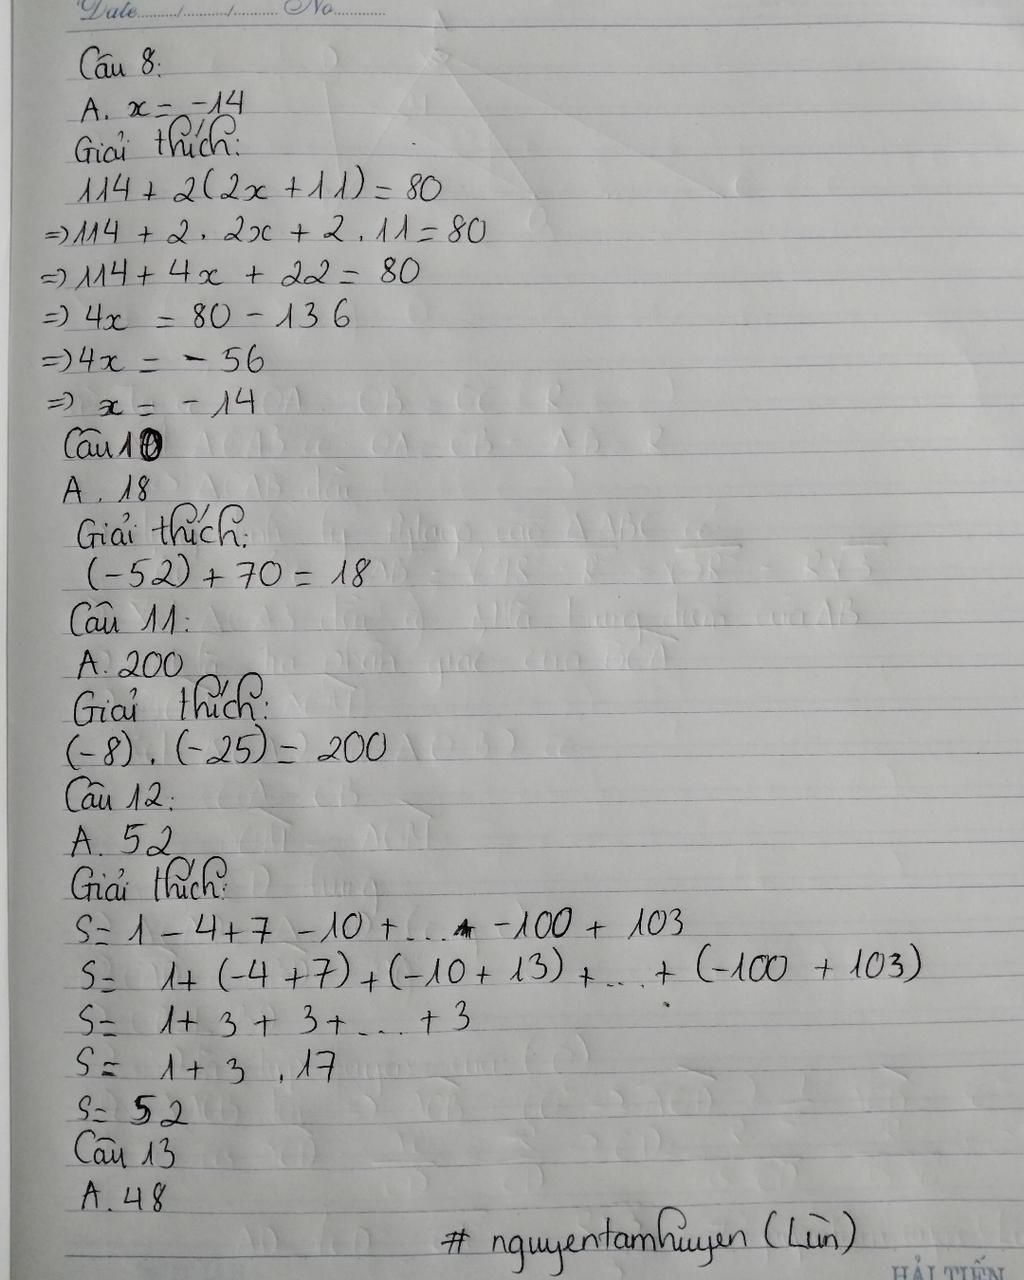 Date......../......../........ No............
Câu 8:
A. x = -14
Giải thích:
114 + 2(2x + 11) = 80
=> 114 + 2 . 2x + 2 . 11 = 80
=> 114 + 4x + 22 = 80
=> 4x = 80 - 136
=> 4x = - 56
=> x = - 14
Câu 10
A. 18
Giải thích:
(-52) + 70 = 18
Câu 11:
A. 200
Giải thích:
(-8) . (-25) = 200
Câu 12:
A. 52
Giải thích:
S= 1 - 4 + 7 - 10 + ... -100 + 103
S= 1+ (-4 + 7) + (-10 + 13) + ... + (-100 + 103)
S= 1+ 3 + 3+ ... + 3
S= 1 + 3 . 17
S= 52
Câu 13
A. 48
# nguyentamhuyen (Lùn)
HẢI TIẾN